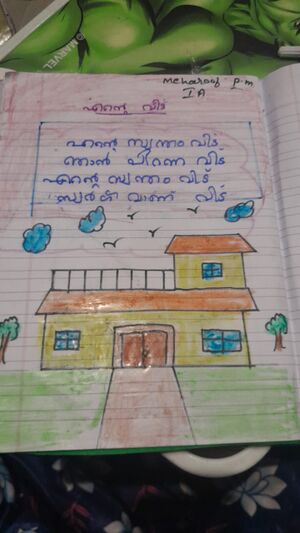 MARVEL
Meharoof P.m
I A
എന്റെ വീട്
എന്റെ സ്വന്തം വീട്
ഞാൻ പിറന്ന വീട്
എന്റെ സ്വന്തം വീട്
സ്വർഗ്ഗ മാണ് വീട്